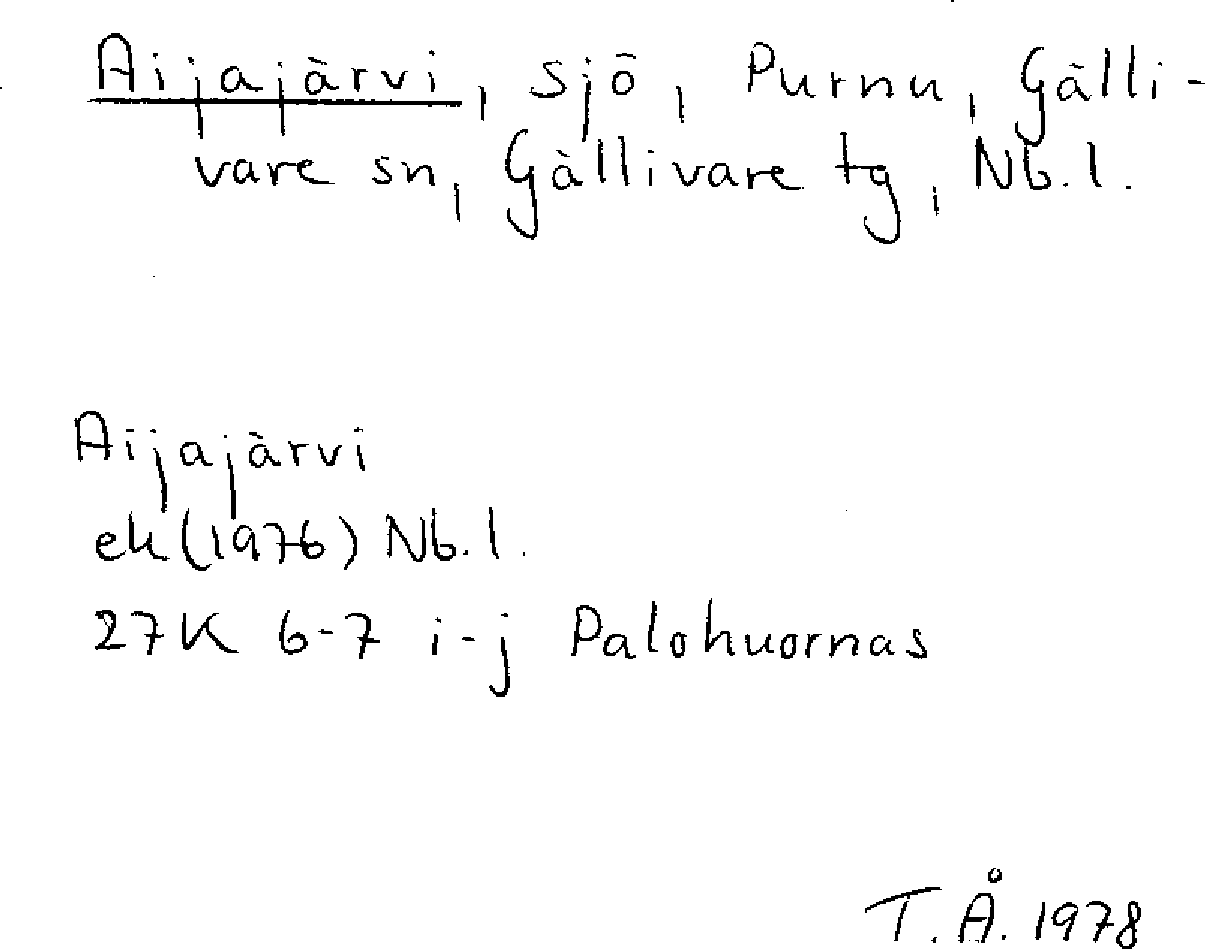 Aijajärvi, sjö, Purnu, Gälli-
vare sn, Gällivare tg, Nb.l.
Aijajärvi
ek (1976) Nb.l.
27K 6-7 i-j Palohuornas
T.Å. 1978